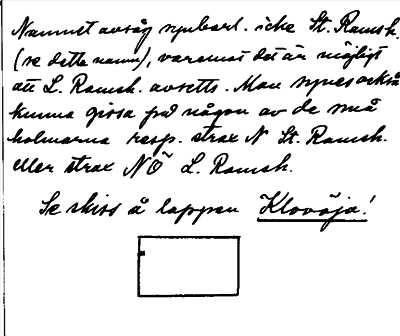 Namnet avsåg uppenbarl. icke St. Ramsh.
(se detta namn), varemot det är möjligt
att L. Ramsh. avsetts. Man synes också
kunna gissa på någon av de små
holmarna resp. strax N St. Ramsh.
eller strax NÖ L. Ramsh.
Se skiss å lappen Klovöja!